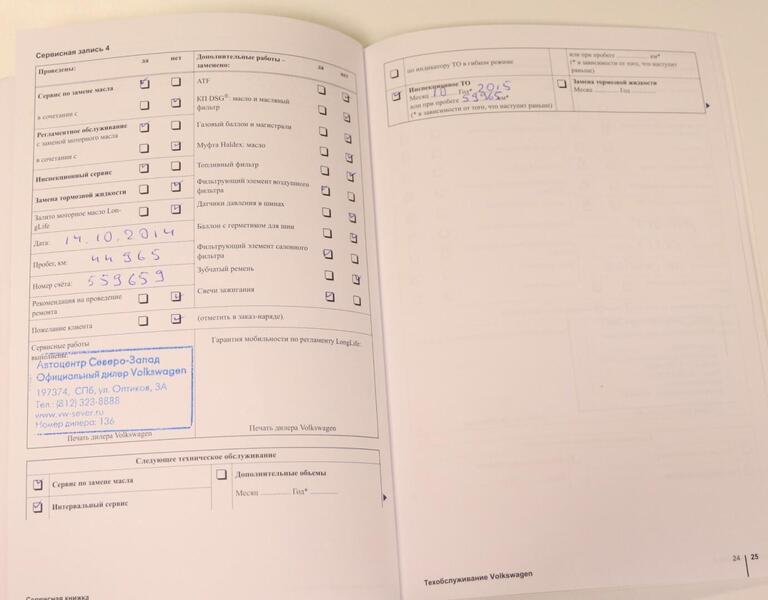 Сервисная запись 4
Проведены:
да
нет
Сервис по замене масла
в сочетании с
Регламентное обслуживание
с заменой моторного масла
в сочетании с
Инспекционный сервис
Замена тормозной жидкости
Залито моторное масло Lon-
gLife
Дата: 14.10.2014
Пробег, км: 44965
Номер счёта: 559659
Рекомендации на проведение
ремонта
Пожелание клиента
Дополнительные работы –
заменено:
да
нет
ATF
КП DSG®: масло и масляный
фильтр
Газовый баллон и магистрали
Муфта Haldex: масло
Топливный фильтр
Фильтрующий элемент воздушного
фильтра
Датчики давления в шинах
Баллон с герметиком для шин
Фильтрующий элемент салонного
фильтра
Зубчатый ремень
Свечи зажигания
(отметить в заказ-наряде).
Сервисные работы
выполнены:
Автоцентр Северо-Запад
Официальный дилер Volkswagen
197374, СПб, ул. Оптиков, 3А
Тел.: (812) 323-8888
www.vw-sever.ru
Номер дилера: 136
Печать дилера Volkswagen
Гарантия мобильности по регламенту LongLife:
Печать дилера Volkswagen
Следующее техническое обслуживание
Сервис по замене масла
Интервальный сервис
Дополнительные объемы
Месяц ........... Год* ...........
Сервисная книжка
по индикатору ТО в гибком режиме
Инспекционное ТО
Месяц 10 Год* 2015
или при пробеге 59965 км*
(* в зависимости от того, что наступит раньше)
или при пробеге ........... км*
(* в зависимости от того, что наступит
раньше)
Замена тормозной жидкости
Месяц ........... Год ...........
Техобслуживание Volkswagen
24
25